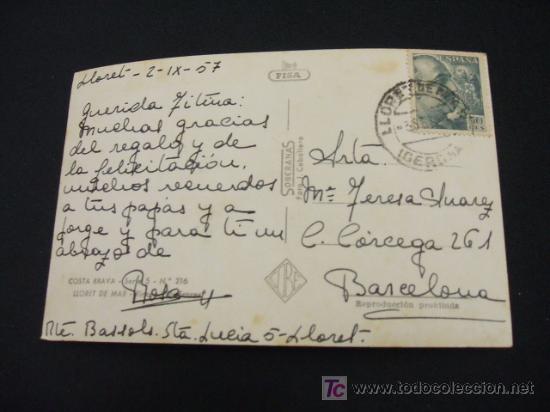 Lloret - 2-IX-57
Querida Titina:
Muchas gracias
del regalo y de
la felicitación,
muchos recuerdos
a tus papás y a
Jorge y para ti un
abrazo de
Rosa
COSTA BRAVA - Serie 5 - N.º 216
LLORET DE MAR
Rte. Bassols. Sta. Lucia 5-Lloret.
FISA
SOBERANAS
Foto J. Caballero
Srta.
Mª Teresa Suarez
C. Córcega 261
Barcelona
Reproducción prohibida
ESPAÑA
50
CTS
LLORET DE MAR
(GERONA)
TC todocoleccion
www.todocoleccion.net